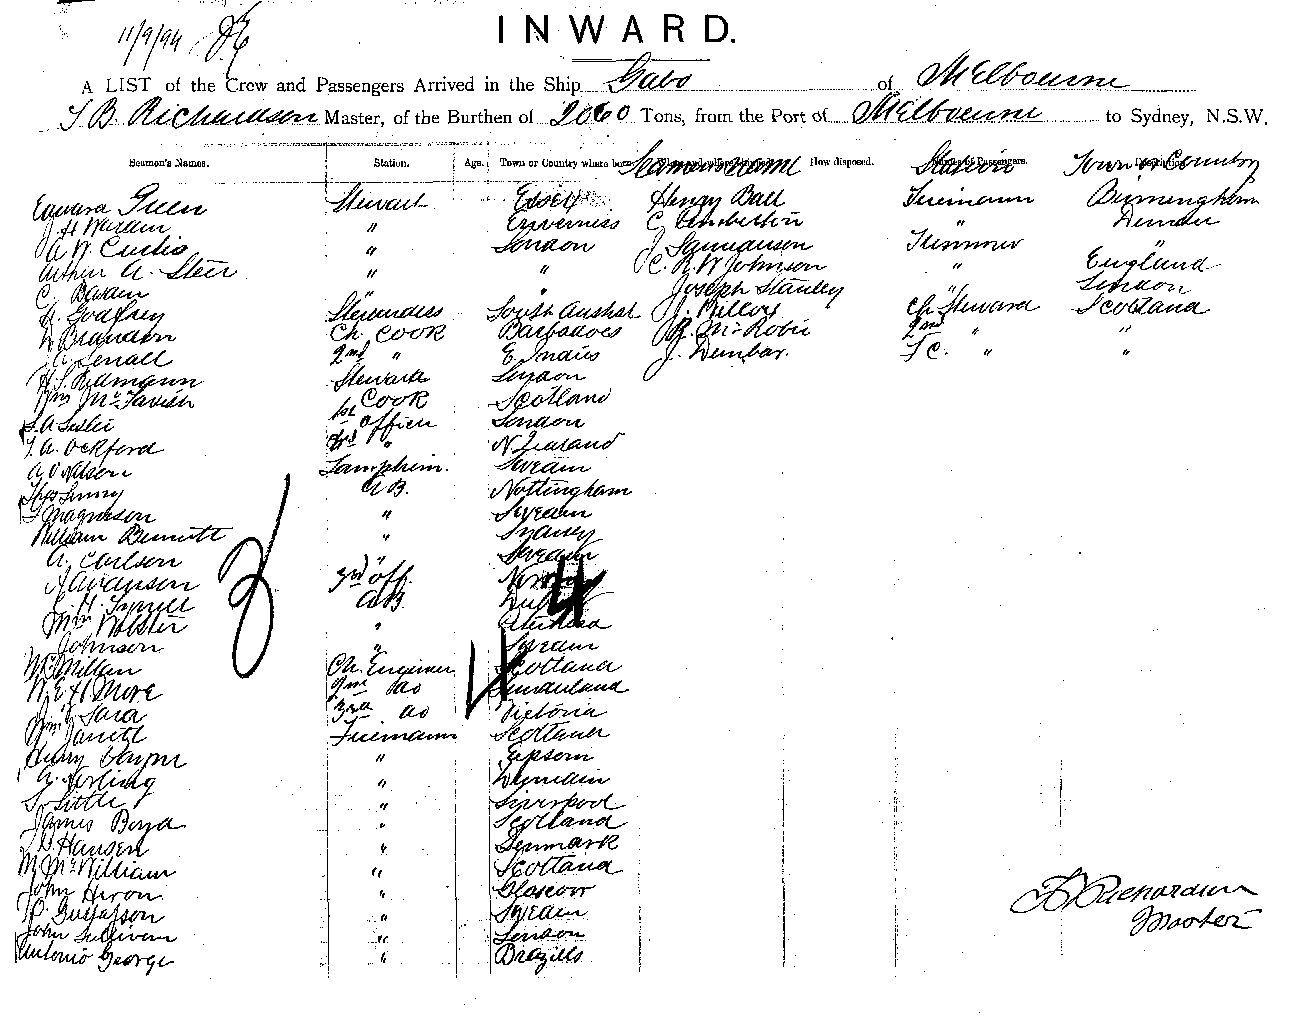 11/9/94
INWARD.
A LIST of the Crew and Passengers Arrived in the Ship Gabo of Melbourne
T B Richardson Master, of the Burthen of 2060 Tons, from the Port of Melbourne to Sydney, N.S.W.
Seamen's Names. Station. Age. Town or Country where born Seamens name How disposed. Station Town or Country
Edward Green Steward Essex Henry Ball Firemann Birmingham
J H Warden " Inverness C Pemberton " Dundee
A. W. Curtis " London J. Samuansen Trimmer "
Arthur A. Steer " " C. R. W Johnson " England
C. Bawden " Joseph Stanley " London
A. Godfrey Stewardess South Austral J. Pillow Ch Steward Scotland
D Brandon Ch. Cook Barbadoes R. McRobie 2nd " "
J. C. Lenall 2nd " E. Indies J. Dunbar. F C. " "
H. S. Redmann Steward London
Wm McTavish Cook Scotland
S. A Leslie 1st Officer London
T. A. Ockford 2nd " N Zealand
A. O Nilson Lamptrim. Sweden
Thos Lunny A B. Nottingham
Magneson " Sweden
William Bennett " Sydney
A. Carlson " Sweden
A Swanson 3rd Off.
C. H. Tyrrell AB
Wm Webster "
Johnson " Sweden
McMillan Ch. Engineer Scotland
W. E. H More 2nd do Sunderland
Wm J Sara 3rd do Victoria
Wm Jarrett Firemann Scotland
Henry Wayne " Epsom
A. Sterling " Dunedin
S. Little " Liverpool
James Boyd " Scotland
D Hansen " Denmark
M. McWilliam " Scotland
John Heron " Glascow
P. Gustafson " Sweden
John Sullivan " London
Antonio George " Brazills
T B Richardson
Master